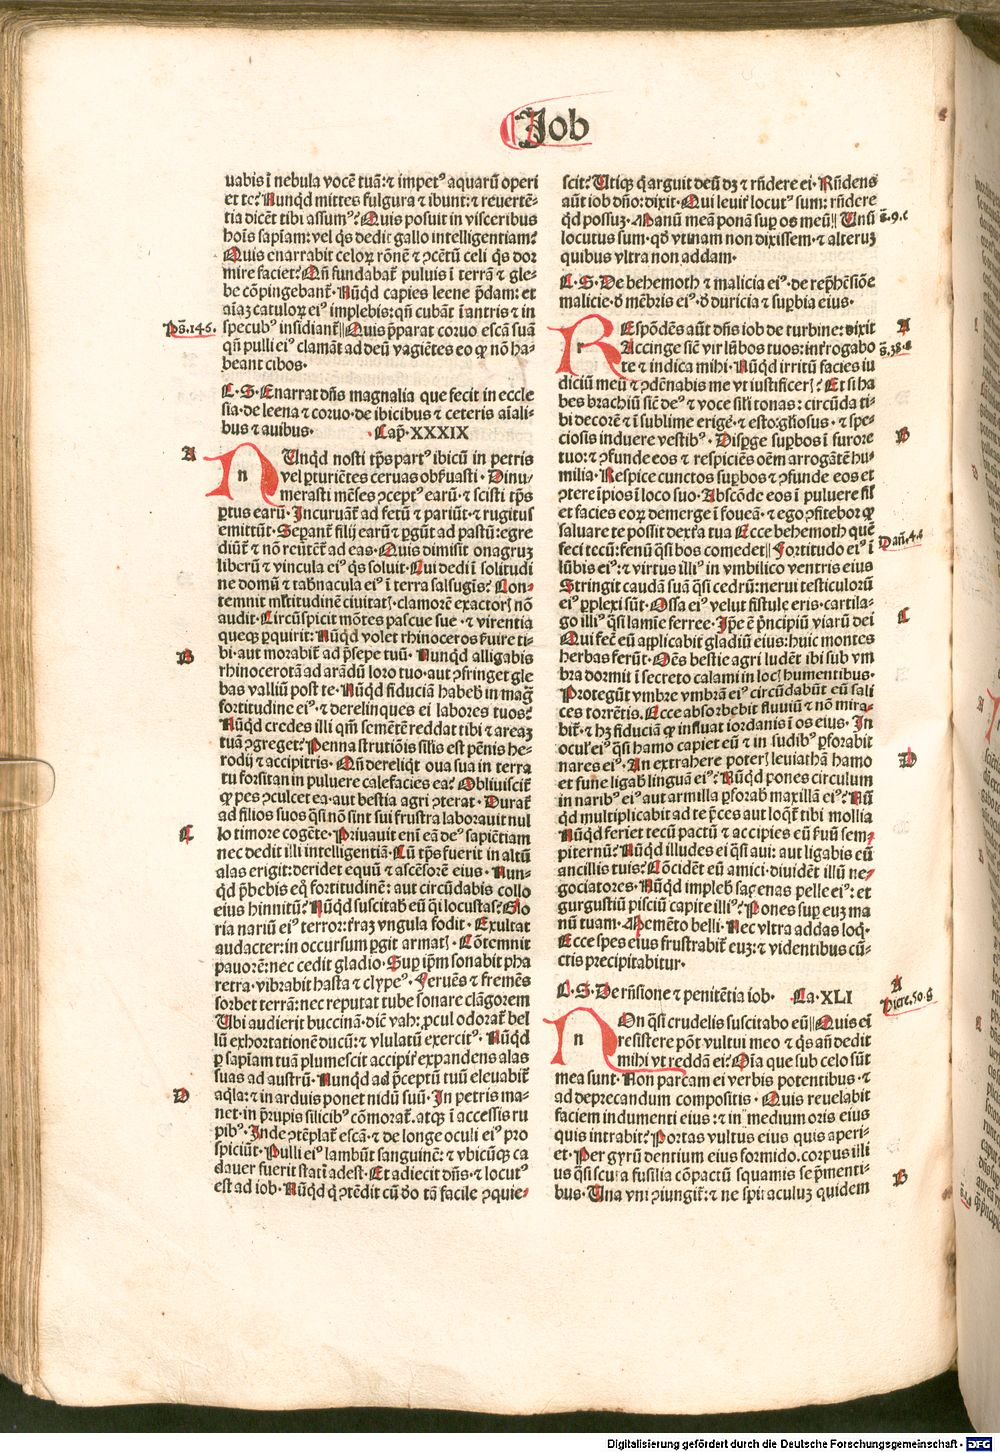 Job
uabis ĩ nebula vocẽ tuã: ⁊ impetꝰ aquarũ operi
et te? Nunqd mittes fulgura ⁊ ibunt: ⁊ reuertẽ-
tia dicẽt tibi assumꝰ? Quis posuit in visceribus
hoĩs sapiẽam: vel qs dedit gallo intelligentiam?
Quis enarrabit celoꝝ rõnẽ ⁊ ꝯcẽtũ celi qs dor
mire faciet? Qñ fundabat̃ puluis ĩ terrã ⁊ gle-
be cõpingebant̃. Nũqd capies leene p̃dam: et
aĩaʒ catuloꝝ eiꝰ implebis: qñ cubãt ĩ antris ⁊ in
Ps̃.146.
specubꝰ insidiant̃ || Quis p̃parat coruo escã suã
qñ pulli eiꝰ clamãt ad deũ vagiẽtes eo ꝙ nõ ha-
beant cibos.
C.S. Enarrat dñs magnalia que fecit in eccle
sia. de leena ⁊ coruo. de ibicibus ⁊ ceteris aĩali-
bus ⁊ auibus. Cap̃.XXXIX
A
n Unqd nosti tp̃s partꝰ ibicũ in petris
vel ꝑturiẽtes ceruas obẽuasti. Dinu-
merasti mẽses ꝯceptꝰ earũ ⁊ scisti tp̃s
ꝑtus earũ. Incuruãt̃ ad fetũ ⁊ pariũt: ⁊ rugitus
emittũt. Sepant̃ filij earũ ⁊ ꝑgũt ad pastũ: egre
diũt̃ ⁊ nõ reũtẽt̃ ad eas. Quis dimisit onagruʒ
liberũ ⁊ vincula eiꝰ qs soluit. Cui dedi ĩ solitudi
ne domũ ⁊ tab̃nacula eiꝰ ĩ terra salsugĩs? Con-
temnit ml̃titudinẽ ciuitatꝭ. clamorẽ exactorꝭ nõ
audit. Circũspicit mõtes pascue sue. ⁊ virentia
queqʒ ꝑquirit: Nũqd volet rhinoceros ẽuire ti-
B
bi. aut morabit̃ ad p̃sepe tuũ. Nunqd alligabis
rhinocerotã ad arãdũ loro tuo. aut ꝯfringet gle
bas valliũ post te. Nũqd fiduciã habeb̃ in mag̃
fortitudine eiꝰ. ⁊ derelinques ei labores tuos?
Nũqd credes illi qm̃ semẽtẽ reddat tibi ⁊ areaʒ
tuã ꝯgreget? Penna strutiõis sil̃is est pẽnis he-
rodij ⁊ accipitris. Qñ dereliqt oua sua in terra
tu forsitan in puluere calefacies ea? Obliuiscit̃
ꝙ pes ꝯculcet ea. aut bestia agri ꝯterat. Durat̃
ad filios suos qsi nõ sint sui frustra laborauit nul
C
lo timore cogẽte. Priuauit enĩ eã deꝰ sapiẽtiam
nec dedit illi intelligentiã. Cũ tp̃s fuerit in altũ
alas erigit: deridet equũ ⁊ ascẽsorẽ eius. Nun-
qd p̃bebis eq̃ fortitudinẽ: aut circũdabis collo
eius hinnitũ? Nũqd suscitab̃ eũ qi locustas? Glo
ria nariũ eiꝰ terror: t̃raʒ vngula fodit. Exultat
audacter: in occursum ꝑgit armatꝭ. Cõtemnit
pauorẽ: nec cedit gladio. Suꝑ ip̃m sonabit pha
retra. vibrabit hasta ⁊ clypeꝰ. Feruẽs ⁊ fremẽs
sorbet terrã: nec reputat tube sonare clãgorem
Ubi audierit buccinã. dic̃ vah: ꝓcul odorat̃ bel
lũ exhortationẽ ducũ: ⁊ vlulatũ exercitꝰ. Nũqd
ꝑ sapiam tuã plumescit accipit̃ expandens alas
suas ad austrũ. Nunqd ad p̃ceptũ tuũ eleuabit̃
D
aqla: ⁊ in arduis ponet nidũ suũ. In petris ma-
net. in p̃rupis silicibꝰ cõmorat̃. atqʒ ĩ accessis ru
pibꝰ. Inde ꝯtẽplat̃ escã. ⁊ de longe oculi eiꝰ pro
spiciũt. Pulli eiꝰ lambũt sanguinẽ: ⁊ vbicũqʒ ca
dauer fuerit statĩ adest. Et adiecit dñs. ⁊ locutꝰ
est ad iob. Nũqd q̃ ꝯtẽdit cũ d̃o tã facile ꝯquie-
scit? Utiqʒ q̃ arguit deũ dʒ ⁊ rñdere ei. Rñdens
aũt iob dño: dixit. Qui leuit̃ locutꝰ sum: rñdere
qd possuʒ. Manũ meã ponã suꝑ os meũ || Unũ
s̃.9.c
locutus sum. qd̃ vtinam non dixissem. ⁊ alteruʒ
quibus vltra non addam.
C.S. De behemoth ⁊ malicia eiꝰ. de rep̃hẽsiõe
malicie. d̃ mẽbris eiꝰ. d̃ duricia ⁊ suꝑbia eius.
r Espõdẽs aũt dñs iob de turbine: dixit
A
Accinge sic̃ vir lũbos tuos: int̃rogabo
s̃.38.a
te ⁊ indica mihi. Nũqd irritũ facies iu
diciũ meũ ⁊ ꝯdẽnabis me vt iustificerꝭ? Et si ha
bes brachiũ sic̃ deꝰ ⁊ voce sil̃i tonas: circũda ti-
bi decorẽ ⁊ ĩ sublime erige. ⁊ esto gl̃iosus. ⁊ spe-
ciosis induere vestibꝰ. Disꝑge suꝑbos ĩ furore
B
tuo: ⁊ ꝯfunde eos ⁊ respiciẽs oẽm arrogãtẽ hu-
milia. Respice cunctos suꝑbos ⁊ ꝯfunde eos et
ꝯtere ĩpios ĩ loco suo. Abscõde eos ĩ puluere sil̃
et facies eoꝝ demerge ĩ foueã. ⁊ ego ꝯfitebor ꝙ
saluare te possit dext̃a tua Ecce behemoth quẽ
feci tecũ: fenũ qsi bos comedet || Fortitudo eiꝰ ĩ
Dañ.4.s
lũbis eiꝰ: ⁊ virtus illiꝰ in vmbilico ventris eius
Stringit caudã suã qsi cedrũ: nerui testiculorũ
eiꝰ ꝑplexi sũt. Ossa eiꝰ velut fistule eris. cartila-
go illiꝰ qsi lamie ferree. Ip̃e ẽ p̃ncipiũ viarũ dei
C
Qui fec̃ eũ applicabit gladiũ eius: huic montes
herbas ferũt. Oẽs bestie agri ludẽt ibi sub vm
bra dormit ĩ secreto calami in locꝭ humentibus.
Protegũt vmbre vmbrã eiꝰ circũdabũt eũ sali
ces torrẽtis. Ecce absorbebit fluuiũ ⁊ nõ mira-
bit̃. ⁊ hʒ fiduciã ꝙ influat iordanis ĩ os eius. In
oculꝭ eiꝰ qsi hamo capiet eũ ⁊ in sudibꝰ ꝑforabit
nares eiꝰ. An extrahere poterꝭ leuiathã hamo
D
et fune ligab̃ linguã eiꝰ? Nũqd pones circulum
in naribꝰ eiꝰ aut armilla ꝑforab̃ maxillã eiꝰ? Nũ
qd multiplicabit ad te p̃ces aut loqt̃ tibi mollia
Nũqd feriet tecũ pactũ ⁊ accipies eũ ẽuũ sem-
piternũ? Nũqd illudes ei qsi aui: aut ligabis eũ
ancillis tuis? Cõcidẽt eũ amici. diuidẽt illũ ne-
gociatores. Nũqd impleb̃ sagenas pelle eiꝰ: et
gurgustiũ pisciũ capite illiꝰ? Pones suꝑ euʒ ma
nũ tuam. Memẽto belli. Nec vltra addas loq̃.
Ecce spes eius frustrabit̃ euʒ: ⁊ videntibus cũ-
ctis precipitabitur.
C.S. De rñsione ⁊ penitẽtia iob. Ca.XLI
A
n On qsi crudelis suscitabo eũ || Quis eĩ
Hiere.50.g
resistere põt vultui meo ⁊ qs añ dedit
mihi vt reddã ei? Oĩa que sub celo sũt
mea sunt. Non parcam ei verbis potentibus. ⁊
ad deprecandum compositis. Quis reuelabit
faciem indumenti eius: ⁊ in medium oris eius
quis intrabit? Portas vultus eius quis aperi-
et. Per gyrũ dentium eius formido. corpus illi
us qsi scuta fusilia cõpactũ squamis se p̃menti-
B
bus. Una vni ꝯiungit̃: ⁊ ne spiraculuʒ quidem
Digitalisierung gefördert durch die Deutsche Forschungsgemeinschaft - DFG